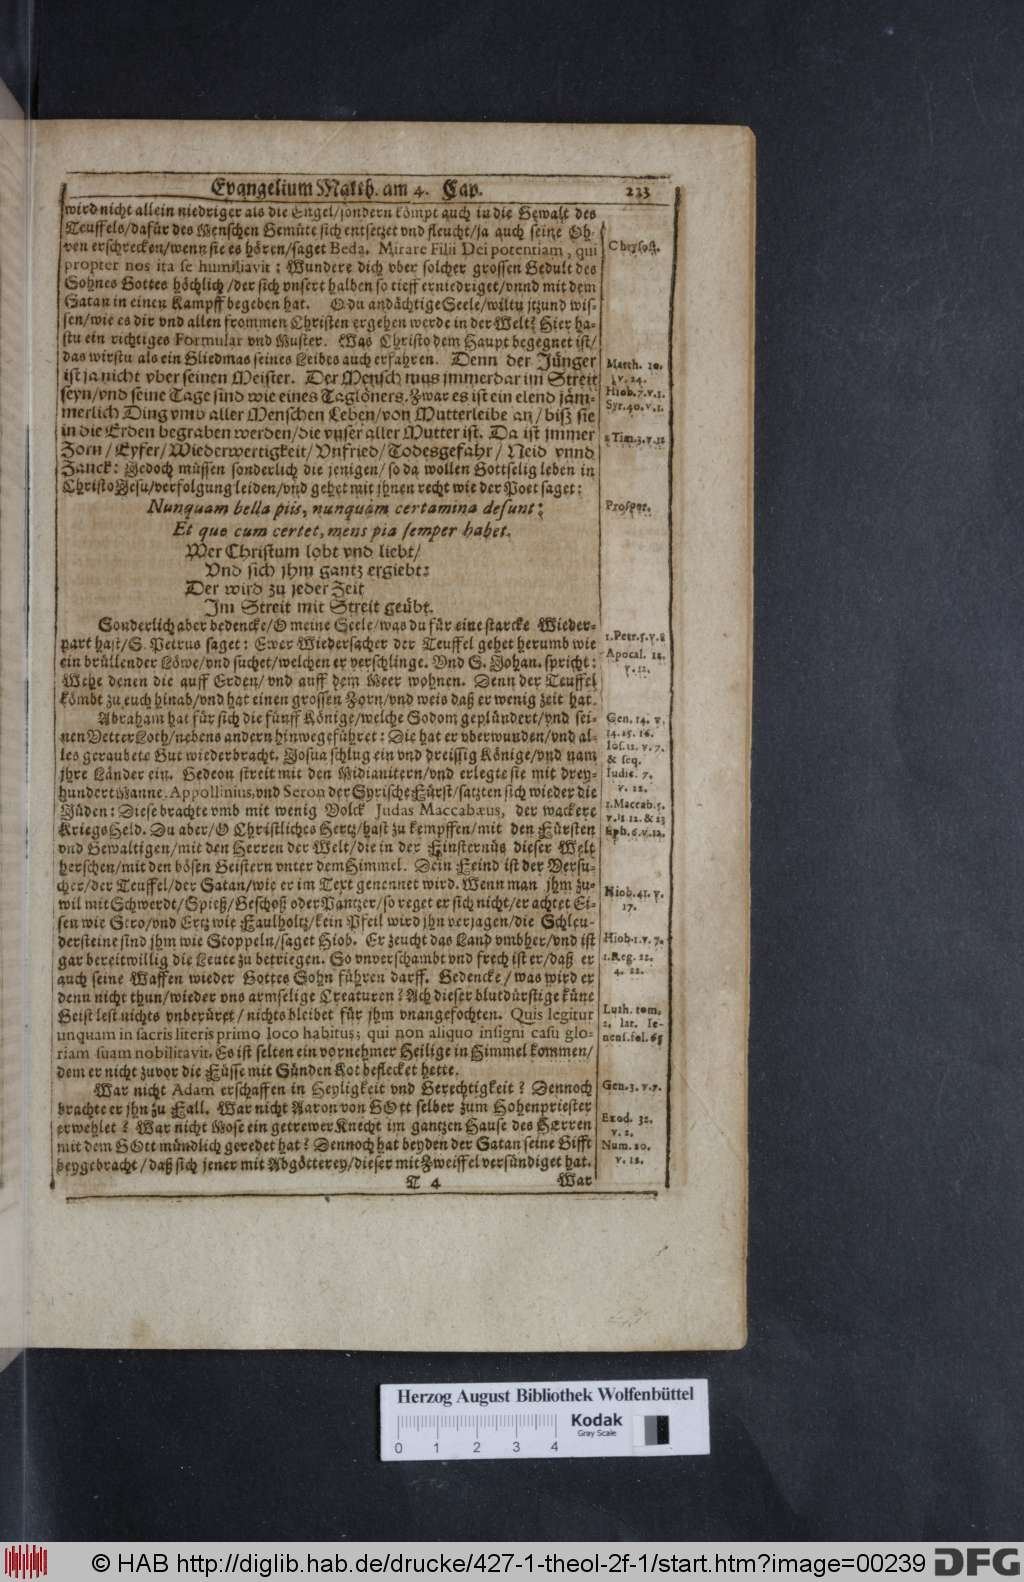 Evangelium Matth. am 4. Cap. 223
wird nicht allein niedriger als die Engel/sondern kömpt auch in die Gewalt des
Teuffels/dafür des Menschen Gemüte sich entsetzet vnd fleucht/ja auch seine Oh-
ren erschrecken/wenn sie es hören/saget Beda. Mirare Filii Dei potentiam, qui
propter nos ita se humiliavit: Wundere dich vber solcher grossen Gedult des
Sohnes Gottes höchlich/der sich vnsert halben so tieff erniedriget/vnnd mit dem
Satan in einen Kampff begeben hat. O du andächtige Seele/wiltu jtzund wis-
sen/wie es dir vnd allen frommen Christen ergehen werde in der Welt? Hier ha-
stu ein richtiges Formular vnd Muster. Was Christo dem Haupt begegnet ist/
das wirstu als ein Gliedmas seines Leibes auch erfahren. Denn der Jünger
ist ja nicht vber seinen Meister. Der Mensch mus jmmerdar im Streit
seyn/vnd seine Tage sind wie eines Taglöners. Zwar es ist ein elend jäm-
merlich Ding vmb aller Menschen Leben/von Mutterleibe an/biß sie
in die Erden begraben werden/die vnser aller Mutter ist. Da ist jmmer
Zorn/Eyfer/Wiederwertigkeit/Vnfried/Todesgefahr/Neid vnnd
Zanck: Jedoch müssen sonderlich die jenigen/so da wollen Gottselig leben in
Christo Jesu/verfolgung leiden/vnd gehet mit jhnen recht wie der Poet saget:
Nunquam bella piis, nunquàm certamina desunt:
Et quo cum certet, mens pia semper habet.
Wer Christum lobt vnd liebt/
Vnd sich jhm gantz ergiebt:
Der wird zu jeder Zeit
Im Streit mit Streit geübt.
Sonderlich aber bedencke/O meine Seele/was du für eine starcke Wieder-
part hast/S. Petrus saget: Ewer Wiedersacher der Teuffel gehet herumb wie
ein brüllender Löwe/vnd suchet/welchen er verschlinge. Vnd S. Johan. spricht:
Wehe denen die auff Erden/vnd auff dem Meer wohnen. Denn der Teuffel
kömbt zu euch hinab/vnd hat einen grossen Zorn/vnd weis daß er wenig zeit hat.
Abraham hat für sich die fünff Könige/welche Sodom geplündert/vnd sei-
nen Vetter Loth/nebens andern hinwegeführet: Die hat er vberwunden/vnd al-
les geraubete Gut wiederbracht. Josua schlug ein vnd dreissig Könige/vnd nam
jhre Länder ein. Gedeon streit mit den Midianitern/vnd erlegte sie mit drey-
hundert Manne. Appollinius, vnd Seron der Syrische Fürst/satzten sich wieder die
Jüden: Diese brachte vmb mit wenig Volck Judas Maccabæus, der wackere
KriegsHeld. Du aber/O Christliches Hertz/hast zu kempffen/mit den Fürsten
vnd Gewaltigen/mit den Herren der Welt/die in der Finsternüs dieser Welt
herschen/mit den bösen Geistern vnter dem Himmel. Dein Feind ist der Versu-
cher/der Teuffel/der Satan/wie er im Text genennet wird. Wenn man jhm zu-
wil mit Schwerdt/Spieß/Geschoß oder Pantzer/so reget er sich nicht/er achtet Ei-
sen wie Stro/vnd Ertz wie Faulholtz/kein Pfeil wird jhn verjagen/die Schleu-
dersteine sind jhm wie Stoppeln/saget Hiob. Er zeucht das Land vmbher/vnd ist
gar bereitwillig die Leute zu betriegen. So vnverschambt vnd frech ist er/daß er
auch seine Waffen wieder Gottes Sohn führen darff. Gedencke/was wird er
denn nicht thun/wieder vns armselige Creaturen? Ach dieser blutdürstige küne
Geist lest nichts vnberüret/nichts bleibet für jhm vnangefochten. Quis legitur
unquam in sacris literis primo loco habitus; qui non aliquo insigni casu glo-
riam suam nobilitavit. Es ist selten ein vornehmer Heilige in Himmel kommen/
dem er nicht zuvor die Füsse mit Sünden Kot beflecket hette.
War nicht Adam erschaffen in Heyligkeit vnd Gerechtigkeit? Dennoch
brachte er jhn zu Fall. War nicht Aaron von GOtt selber zum Hohenpriester
erwehlet? War nicht Mose ein getrewer Knecht im gantzen Hause des HErren
mit dem GOtt mündlich geredet hat? Dennoch hat beyden der Satan seine Gifft
beygebracht/daß sich jener mit Abgötterey/dieser mit Zweiffel versündiget hat.
T 4 War
Chrysost.
Matth. 10.
v. 24.
Hiob. 7. v. 1.
Syr. 40. v. 1.
2 Tim. 3. v. 12
Prosper.
1. Petr. 5. v. 8
Apocal. 12.
v. 12.
Gen. 14. v.
14. 15. 16.
Ios. 12. v. 7.
& seq.
Iudic. 7.
v. 22.
1. Maccab. 3.
v. 11. 12. & 23
Eph. 6. v. 12.
Hiob. 41. v.
17.
Hiob. 1. v. 7.
1. Reg. 22.
4. 22.
Luth. tom.
2. lat. Ie-
nens. fol. 65
Gen. 3. v. 7.
Exod. 32.
v. 2.
Num. 20.
v. 12.
Herzog August Bibliothek Wolfenbüttel
Kodak
Gray Scale
0 1 2 3 4
© HAB http://diglib.hab.de/drucke/427-1-theol-2f-1/start.htm?image=00239 DFG